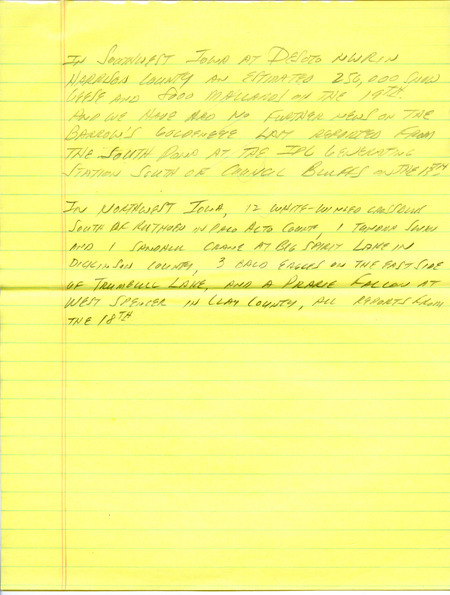 In Southwest Iowa at DeSoto NWR in
Harrison County an estimated 250,000 Snow
Geese and 8000 Mallards on the 19th.
And we have had no further news on the
Barrow's Goldeneye last reported from
the South Pond at the IPL Generating
Station South of Council Bluffs on the 17th
In Northwest Iowa, 12 White-winged Crossbills
South of Ruthven in Palo Alto County, 1 Tundra Swan
and 1 Sandhill Crane at Big Spirit Lake in
Dickinson County, 3 Bald Eagles on the east side
of Trumbull Lake, and a Prarie Falcon at
West Spencer in Clay County, all reports from
the 18th